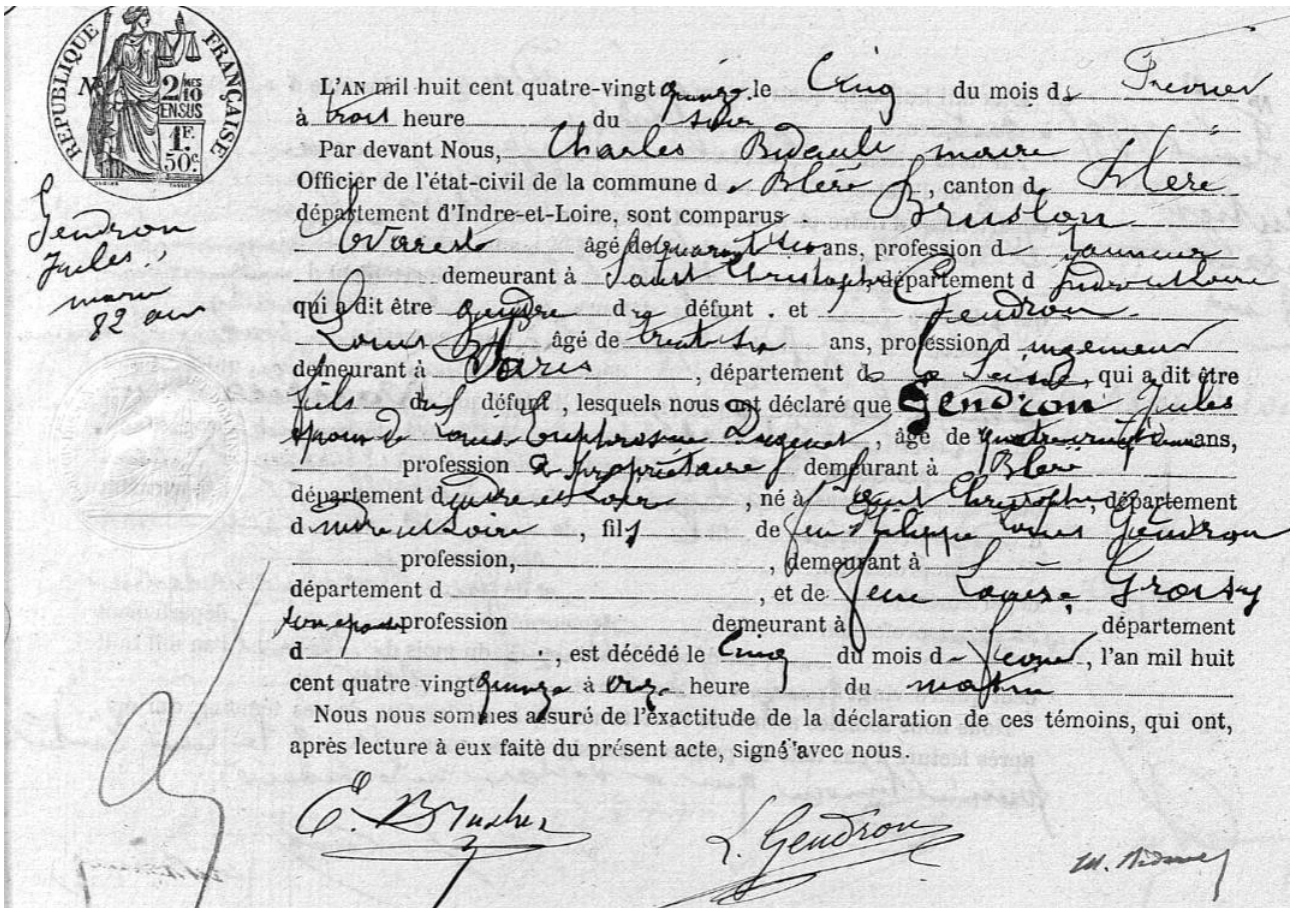 RÉPUBLIQUE FRANÇAISE
2/10 MES
EN SUS
1F.
50c.
Gendron
Jules,
marié
82 ans
L'AN mil huit cent quatre-vingt quinze le Cinq du mois de Fevrier
à trois heure du soir
Par devant Nous, Charles Bidault maire
Officier de l'état-civil de la commune de Bléré, canton de Bléré
département d'Indre-et-Loire, sont comparus Bruslon
Evariste âgé de quarante ans, profession d tanneur
demeurant à Saint Christophe, département d Indre et Loire
qui a dit être gendre du défunt. et Gendron
Louis âgé de trente six ans, profession d ingenieur
demeurant à Paris, département de la Seine, qui a dit être
fils du défunt, lesquels nous ont déclaré que Gendron Jules
époux de Louise Euphrosine, âgé de quatre vingt deux ans,
profession propriétaire demeurant à Bléré
département d indre et Loire, né à Saint Christophe, département
d indre et Loire, fils de feu Philippe Louis Gendron
profession, , demeurant à
département d , et de feue Louise
son épouse profession demeurant à département
d , est décédé le Cinq du mois de Fevrier, l'an mil huit
cent quatre vingt quinze à onze heure du matin
Nous nous sommes assuré de l'exactitude de la déclaration de ces témoins, qui ont,
après lecture à eux faite du présent acte, signé avec nous.
L. Gendron